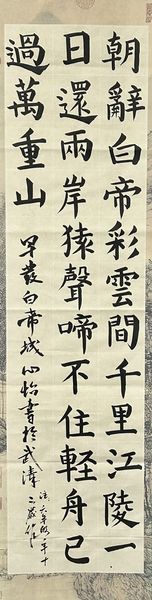 朝辭白帝彩雲間千里江陵一
日還兩岸猿聲啼不住輕舟已
過萬重山
早發白帝城心怡書於武漢